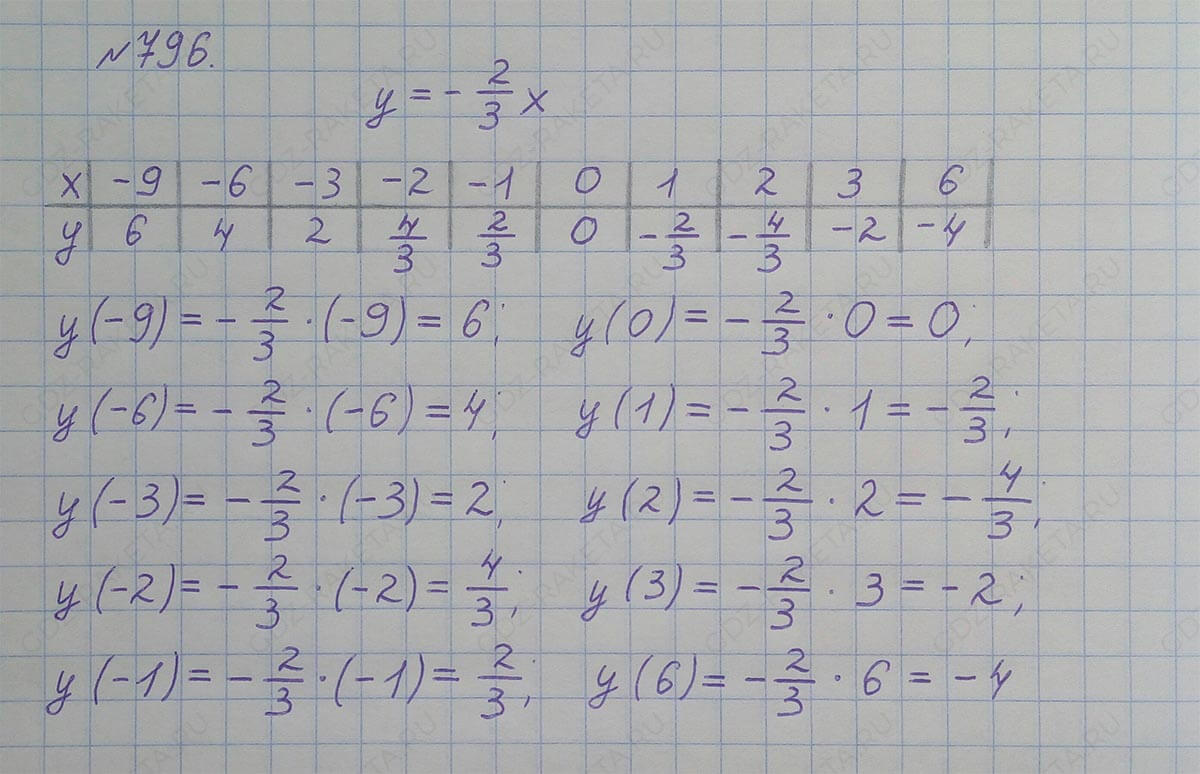 №796.
y = - 2/3 x
x | -9 | -6 | -3 | -2 | -1 | 0 | 1 | 2 | 3 | 6
y | 6 | 4 | 2 | 4/3 | 2/3 | 0 | -2/3 | -4/3 | -2 | -4
y(-9) = - 2/3 · (-9) = 6; y(0) = - 2/3 · 0 = 0;
y(-6) = - 2/3 · (-6) = 4; y(1) = - 2/3 · 1 = - 2/3;
y(-3) = - 2/3 · (-3) = 2; y(2) = - 2/3 · 2 = - 4/3;
y(-2) = - 2/3 · (-2) = 4/3; y(3) = - 2/3 · 3 = -2;
y(-1) = - 2/3 · (-1) = 2/3; y(6) = - 2/3 · 6 = -4
GDZ-RAKETA.RU